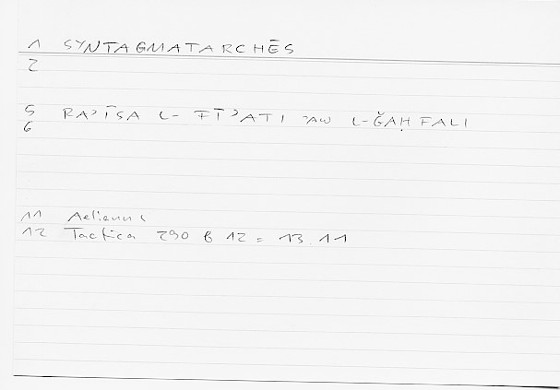 1 SYNTAGMATARCHĒS
2
5 RAʾĪSA L-FĪʾATI ʾAW L-ǦAḤFALI
6
11 Aelianus
12 Tactica 290 b 12 = 13 11